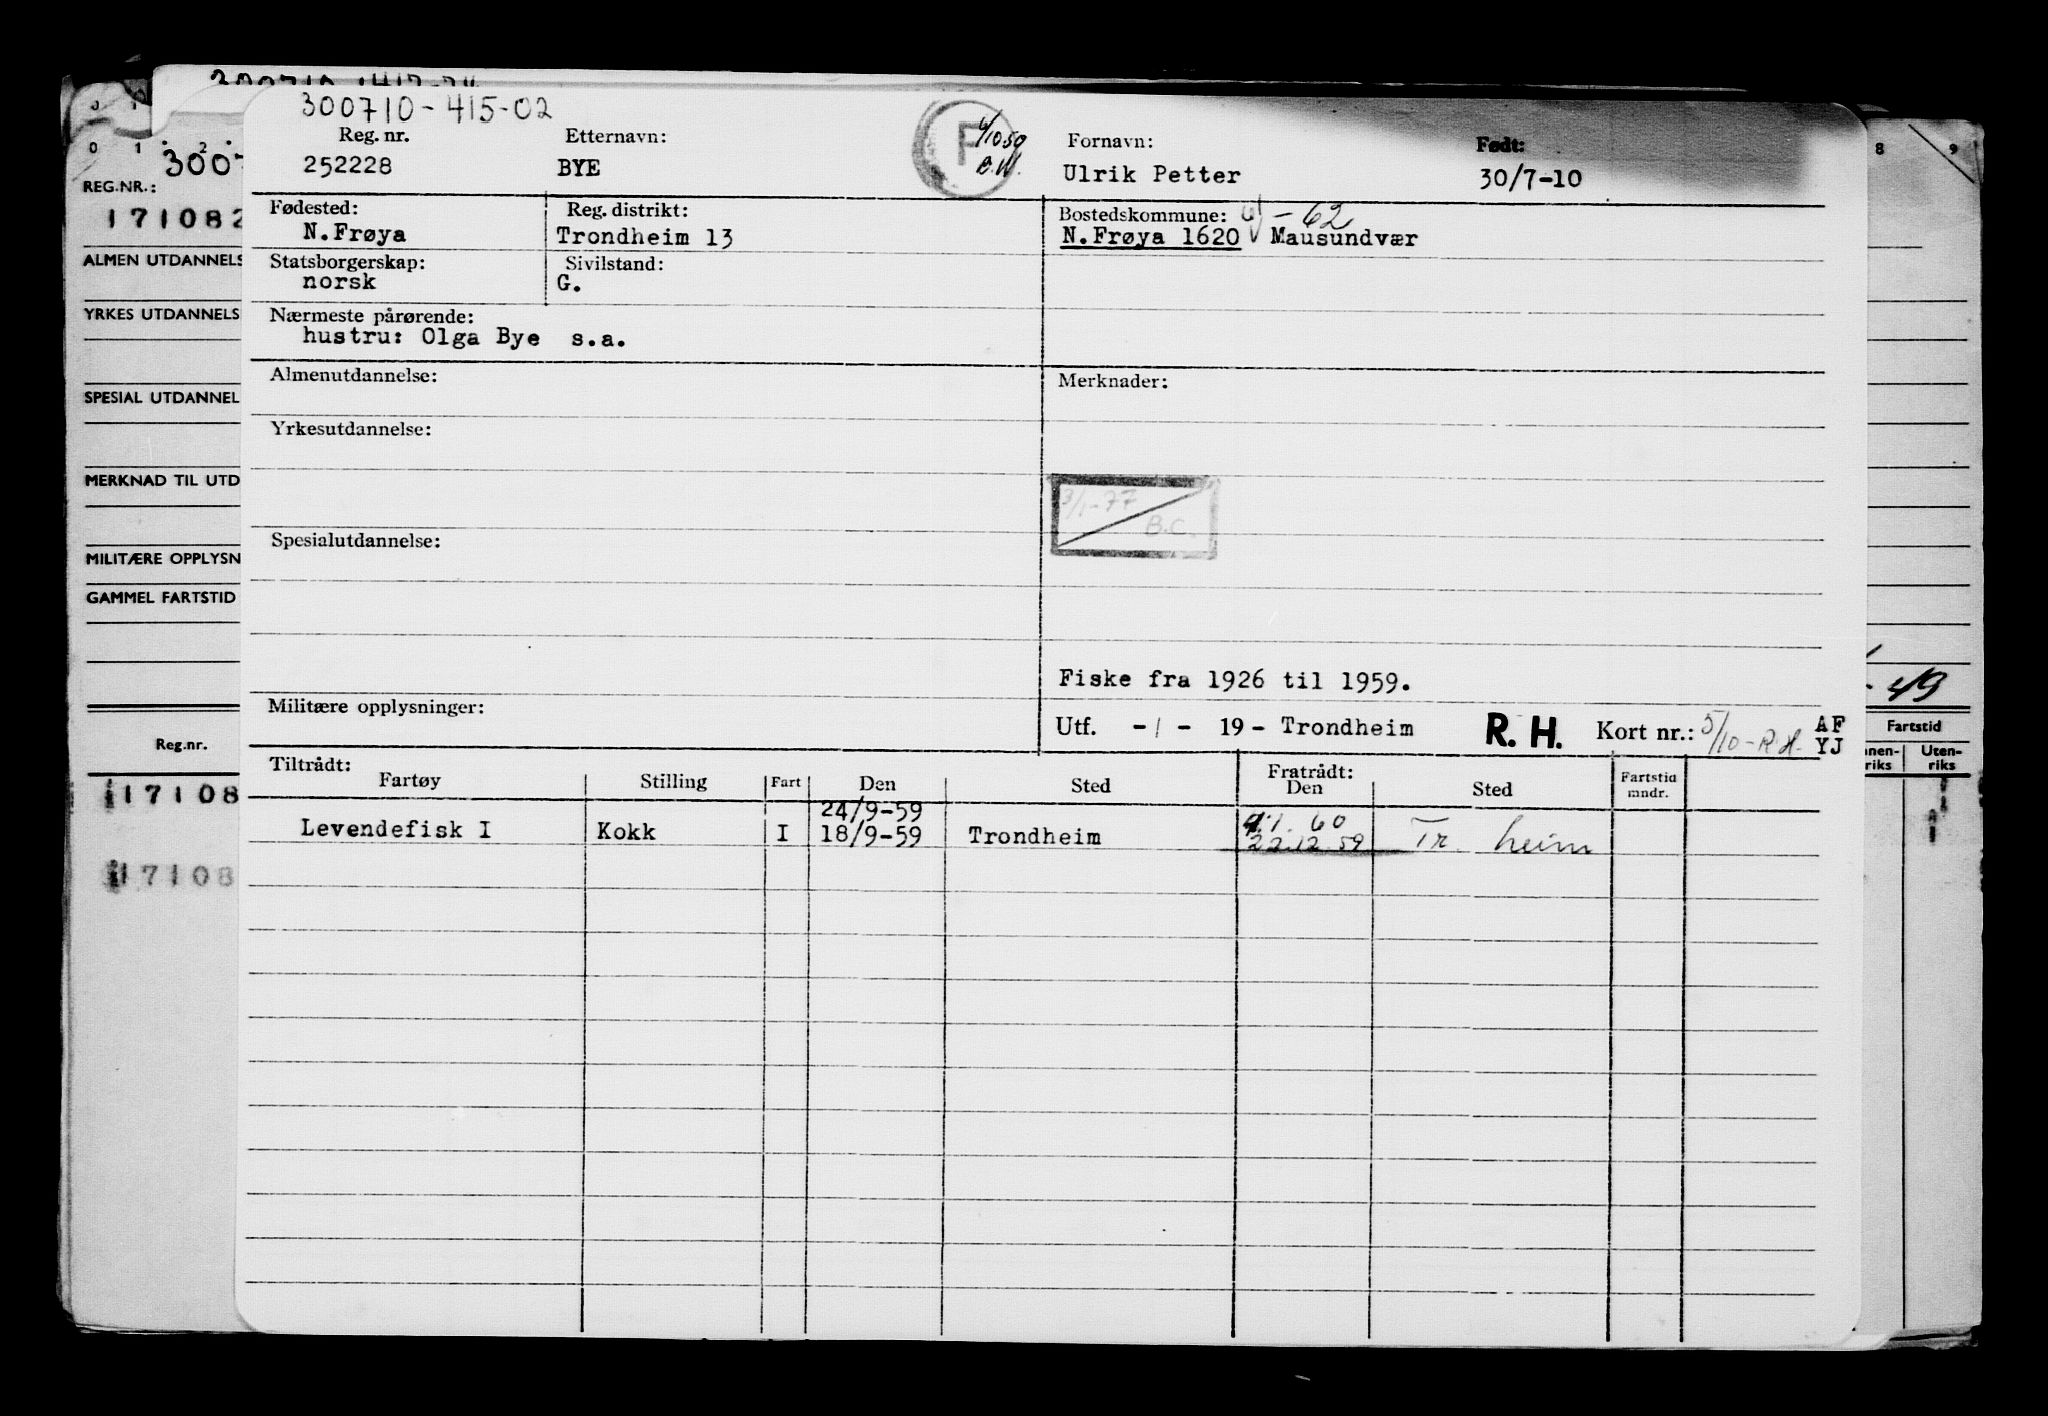 300710-415-02
Reg. nr. Etternavn: Fornavn: Født:
252228 BYE F Ulrik Petter 30/7-10
Fødested: Reg. distrikt: Bostedskommune: -62
N.Frøya Trondheim 13 N.Frøya 1620 Mausundvær
Statsborgerskap: Sivilstand:
norsk G.
Nærmeste pårørende:
hustru: Olga Bye s.a.
Almenutdannelse: Merknader:
Yrkesutdannelse:
3/1-77
B.C.
Spesialutdannelse:
Fiske fra 1926 til 1959.
Militære opplysninger: Utf. -1- 19- Trondheim R. H. Kort nr.: 5/10-R.H. AF
YJ
Tiltrådt: Fratrådt:
Fartøy Stilling Fart Den Sted Den Sted Fartstid mndr.
24/9-59 60
Levendefisk I Kokk I 18/9-59 Trondheim 22.12.59 Tr.heim
0 1 2
3007
REG.NR.:
171082
ALMEN UTDANNELS
YRKES UTDANNELS
SPESIAL UTDANNEL
MERKNAD TIL UTD
MILITÆRE OPPLYSN
GAMMEL FARTSTID
Reg.nr.
17108
17108
8 9
-49
Fartstid
nnen-
riks
Uten-
riks